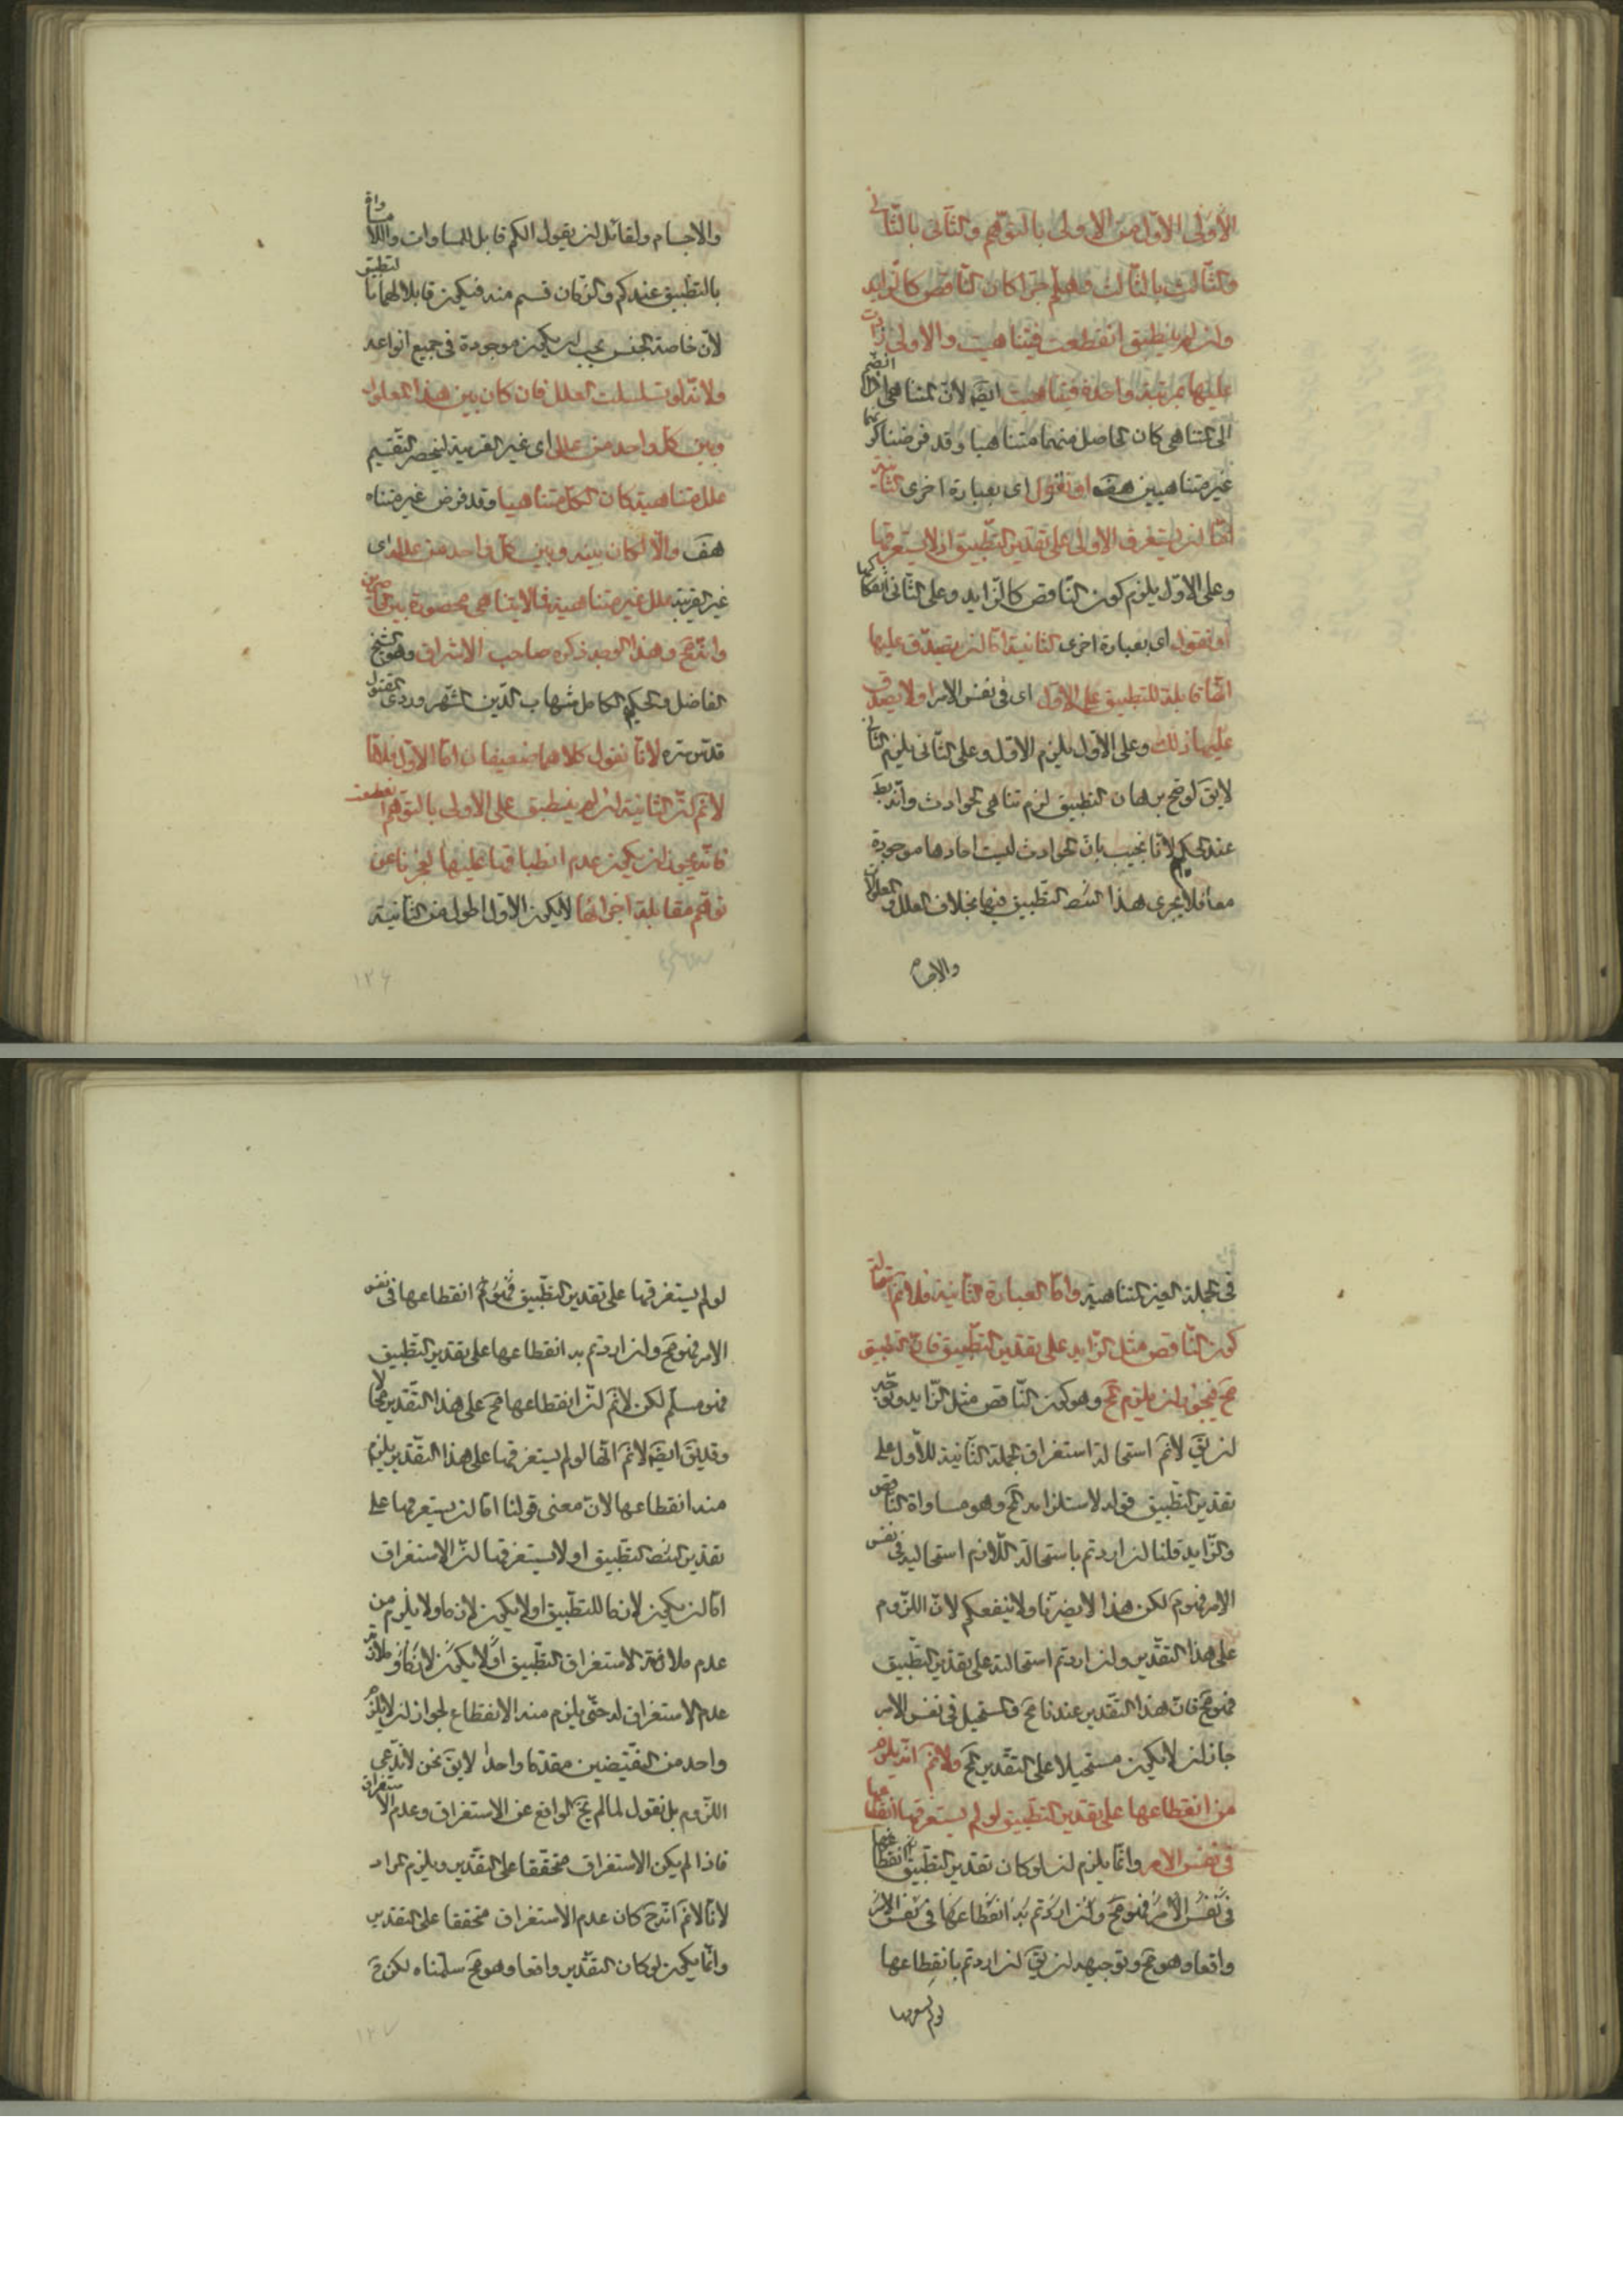 الأولى الأول من الأولى بالتوهم والثانى بالثانى
والثالث بالثالث وهلم جرا كان الناقص كالزايد
وان لم ينطبق انقطعت فيتناهيت والاولى زادت
عليها بمرتبة واحدة فيتناهيت ايضَ لان المتناهى اذا انضم
الى المتناهى كان الحاصل منهما متناهيا وقد فرضنا كونهما
غير متناهيين هفَ او نقول اى بعبارة اخرى الثانية
اما ان يستغرق الاولى على تقدير التطبيق او لا يستغرقها
وعلى الاول يلزم كون الناقص كالزايد وعلى الثانى انقطاعها
او نقول اى بعبارة اخرى الثانية اما ان يصدق عليها
انها قابلة للتطبيق على الاول اى فى نفس الامر او لا يصدق
عليها ذلك وعلى الاول يلزم الاول وعلى الثانى يلزم الثانى
لايقَ لو صح برهان التطبيق لزم تناهى الحوادث وانه بط
عند الحكيم لانا نجيب بان الحوادث ليست احادها موجودة
معا فلا يجرى هذا التطبيق فيها بخلاف العلل والمعلولات
والاجسام
والاجسام ولقائل ان يقول الكم قابل للمساوات واللامساواة
بالتطبيق عندكم والزمان قسم منه فيكون قابلا لهما بالتطبيق
لان خاصة الجنس يجب ان يكون موجودة فى جميع انواعه
ولانه لو تسلسلت العلل فان كان بين هذا المعلول
وبين كل واحد من علله اى غير القريبة لينحصر التقسيم
علل متناهية كان الكل متناهيا وقد فرض غير متناه
هفَ والا لكان بينه وبين كل واحد من علله اى
غير القريبة علل غير متناهية فالايتناهى محصورة بين حاصرين
وانه مح وهذا الوجه ذكره صاحب الاشراق وهو الشيخ
الفاضل والحكيم الكامل شهاب الدين السهروردى المقتول
قدس سره لانا نقول كلاهما ضعيفان اما الاول فلانا
لانم ان الثانية ان لم ينطبق على الاولى بالتوهم انقطعت
فانه يجوز ان يكون عدم انطباقها عليها لعجزنا عن
توهم مقابلة اجزائها لا لكون الاولى اطول من الثانية
١٢٦
فى الجملة الغير المتناهية واما العبارة الثانية فلانم استحالة
كون الناقص مثل الزايد على تقدير التطبيق فان التطبيق
مح فيجوز ان يلزم مح وهو كون الناقص مثل الزايد وتوجيه
ان يقَ لانم استحالة استغراق الجملة الثانية للاول على
تقدير التطبيق قوله لاستلزامه المح وهو مساواة الناقص
والزايد قلنا ان اردتم باستحالة اللازم استحاليه فى نفس
الامر فهو مَ لكن هذا لايضرنا ولا ينفعكم لان اللزوم
على هذا التقدير وان اردتم استحالته على تقدير التطبيق
فهو مح فان هذا التقدير عندنا مح والمستحيل فى نفس الامر
جاز ان لايكون مستحيلا على التقدير المح ولانم انه يلزم
من انقطاعها على تقدير التطبيق لو لم يستغرقها انقطاعها
فى نفس الامر وانما يلزم ان لو كان تقدير التطبيق
فى نفس الامر فهو مح وان اردتم به انقطاعها فى نفس الامر
واقعا وهو مح وتوجيهه ان يقَ ان اردتم بانقطاعها
لو لم يستغرقها
لو لم يستغرقها على تقدير التطبيق انقطاعها فى نفس
الامر فهو مح وان اردتم به انقطاعها على تقدير التطبيق
فهو مسلم لكن لانم ان انقطاعها مح على هذا التقدير
وقد يقَ ايضَ لانم انها لو لم يستغرقها على هذا التقدير يلزم
منه انقطاعها لان معنى قولنا اما ان يستغرقها على
تقدير التطبيق او لا يستغرقها ان الاستغراق
اما ان يكون لازما للتطبيق او لايكون لازما ولا يلزم من
عدم ملازمة الاستغراق التطبيق
عدم الاستغراق له حتى يلزم منه الانقطاع لجواز ان لا يلزم
واحد من النقيضين مقدما واحدا لايقَ نحن لاندعى
اللزوم بل نقول لما لم يخ الواقع عن الاستغراق وعدم الاستغراق
فاذا لم يكن الاستغراق متحققا على التقدير ويلزم المراد
لانا لانم انه ح كان عدم الاستغراق متحققا على التقدير
وانما يكون لو كان التقدير واقعا وهو مح سلمناه لكن ح
١٢٧